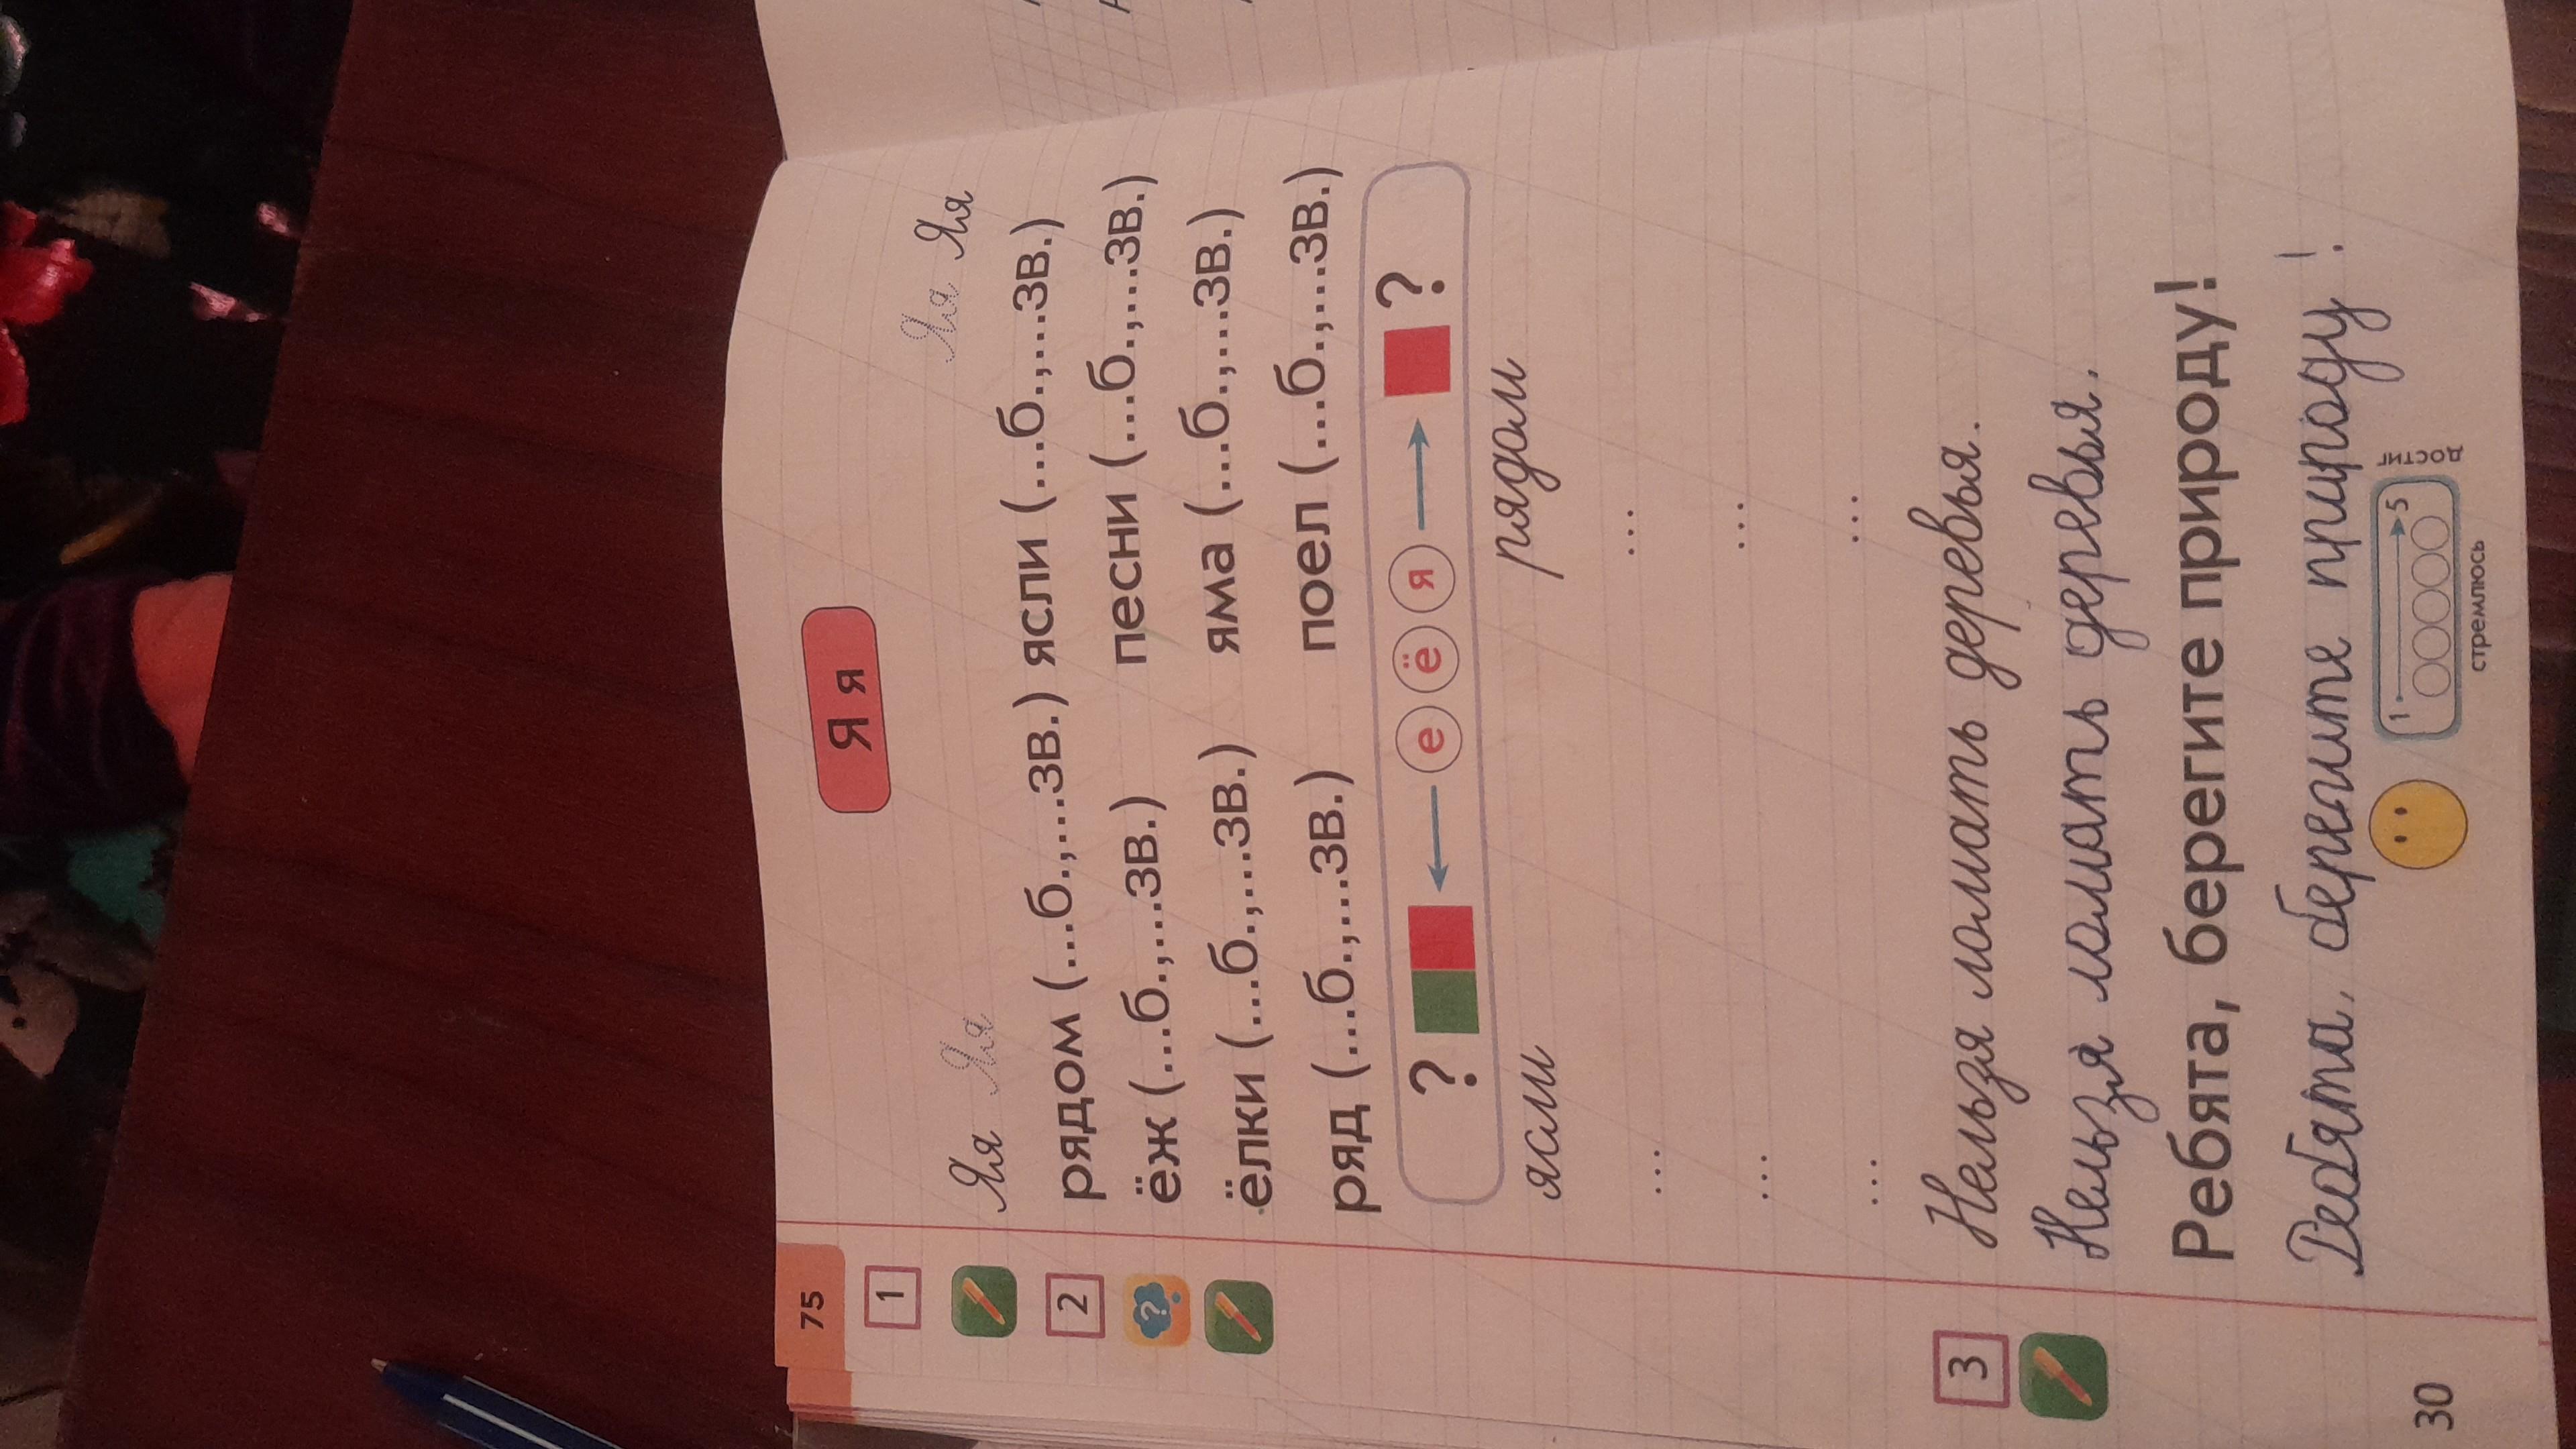 75
Я я
1
Яя Яя Яя Яя
2
рядом (...б.,...зв.) ясли (...б.,...зв.)
? ёж (...б.,...зв.) песни (...б.,...зв.)
ёлки (...б.,...зв.) яма (...б.,...зв.)
ряд (...б.,...зв.) поел (...б.,...зв.)
? е ё я ?
ясли рядом
... ...
... ...
... ...
3 Нельзя ломать деревья.
Нельзя ломать деревья.
Ребята, берегите природу!
Ребята, берегите природу!
1 5 достиг
стремлюсь
30